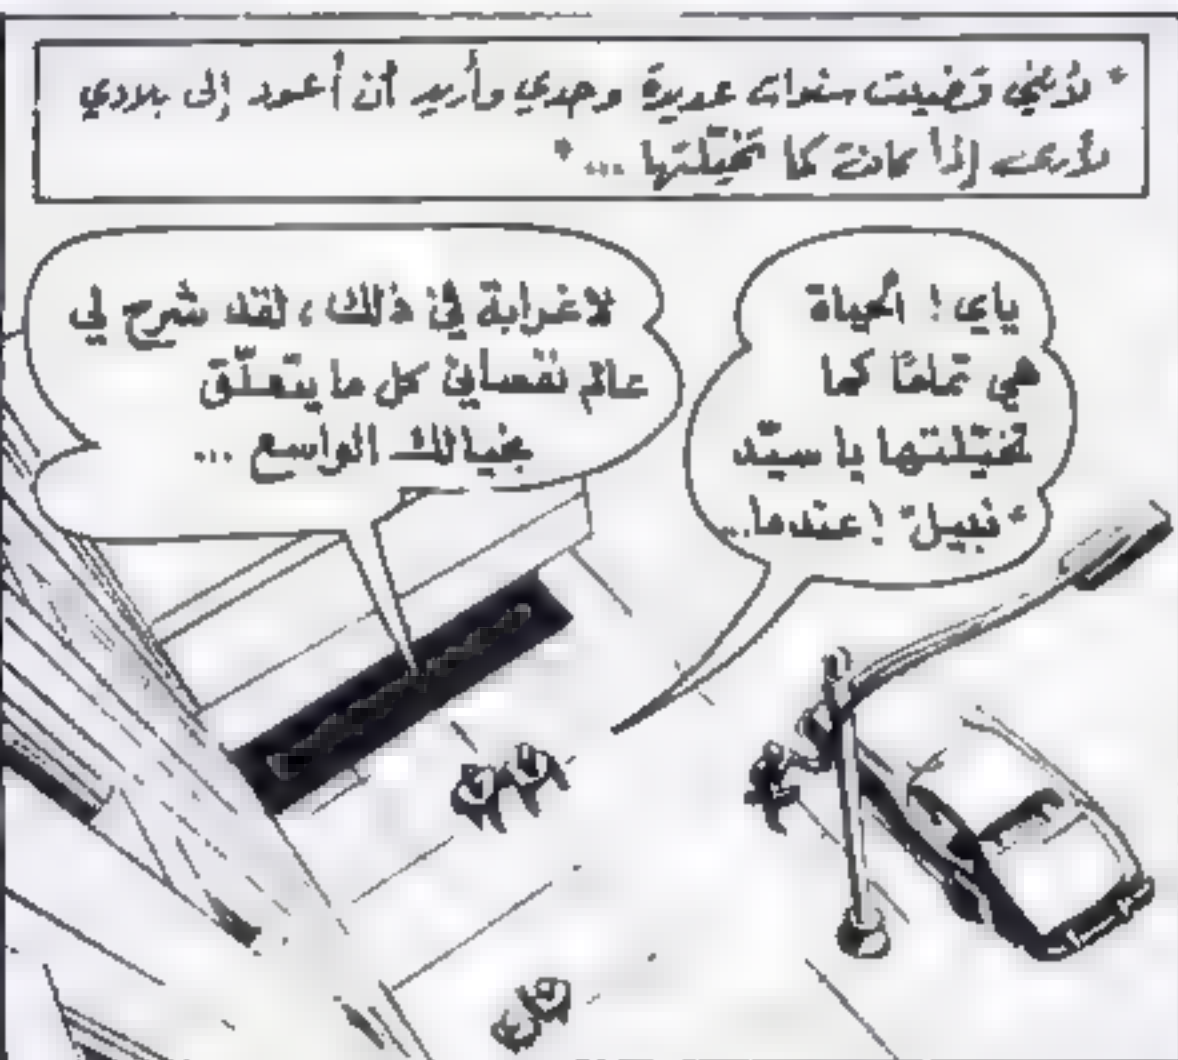 " لأنني قضيت سنوات عديدة وحدي وأريد أن أعود إلى بلادي
لأرى إذا كانت كما تخيّلتها ... "
ياي ! الحياة
هي تمامًا كما
تخيّلتها يا سيّد
" نبيل " ! عندما ..
لا غرابة في ذلك ، لقد شرح لي
عالم نفساني كل ما يتعلّق
بخيالك الواسع ...